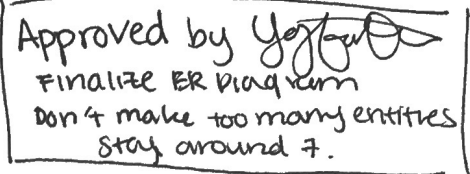 Approved by
Finalize ER Diagram
Don't make too many entities
Stay around 7.